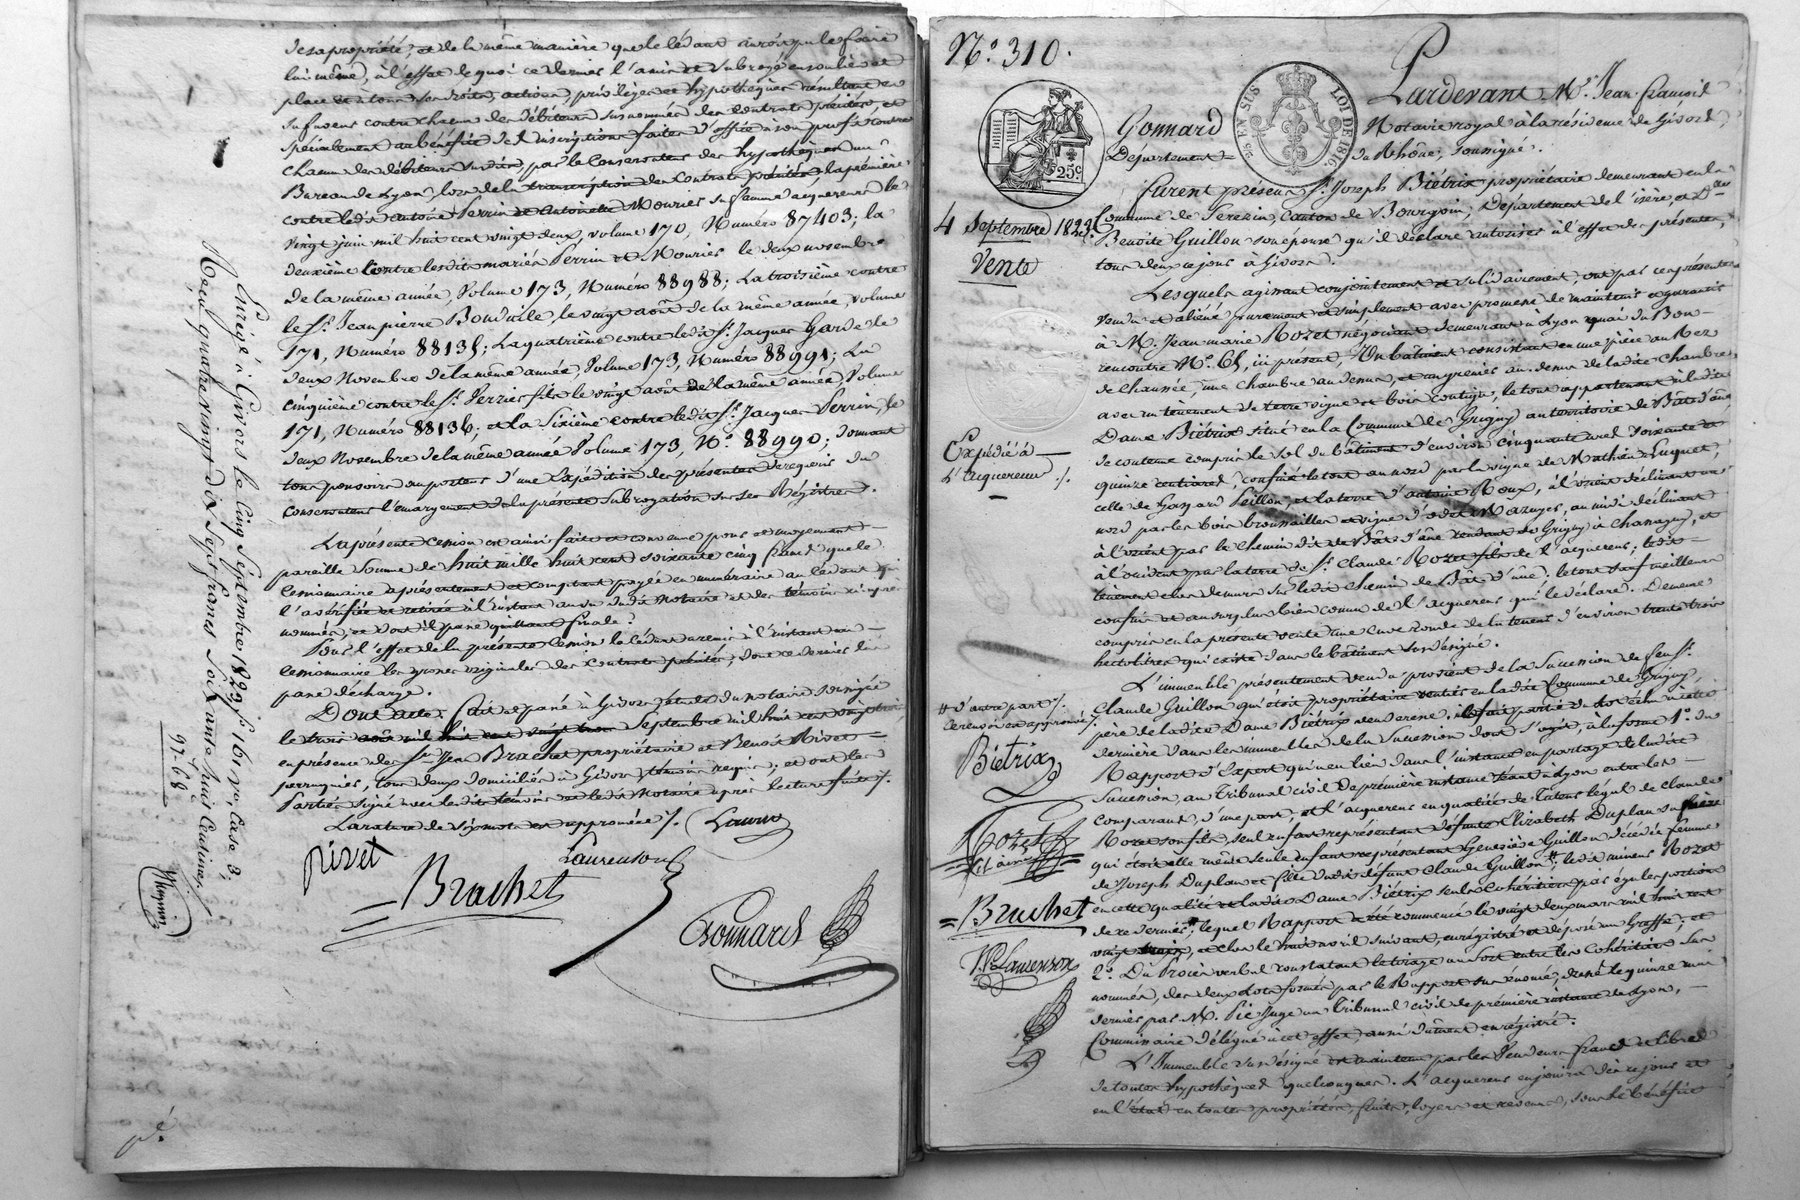 de sa propriété, et de la même manière que le cédant auroit pu le faire
lui même, à l'effet de quoi ce dernier l'a mis et subrogé en son lieu et
place et à tous ses droits, actions, privilèges et hypothèques résultant en
sa faveur contre chacun des débiteurs susnommés des contrats précités, et
spécialement au bénéfice de l'inscription faite d'office à son profit contre
chacun des débiteurs susdits, par le Conservateur des hypothèques au
Bureau de Lyon, lors de la transcription des contrats précités, la première
contre ledit antoine Perrin et Antoinette Mouriés sa femme acquereurs le
vingt juin mil huit cent vingt deux, volume 170, Numéro 87403; la
deuxième contre lesdits mariés Perrin et Mouriés le deux novembre
de la même année, Volume 173, Numéro 88988; la troisième contre
le Sr. Jean pierre le vingt août de la même année, volume
171, Numéro 88135; La quatrième contre ledit Sr. Jacques Garde le
deux Novembre de la même année, Volume 173, Numéro 88991; La
cinquième contre le Sr. Perrier fils le vingt août de la même année, Volume
171, Numéro 88136; et la Sixième contre ledit Sr. Jacques Perrin, le
deux Novembre de la même année Volume 173, No. 88990; donnant
tous pouvoirs au porteur d'une Expédition des présentes de requérir du
conservateur l'émargement de la présente subrogation sur ses Régistres.
La présente cession est ainsi faite et convenue pour et moyennant
pareille somme de huit mille huit cent soixante cinq francs que le
cessionnaire a présentement et comptant payée en numéraire au cédant qui
l'a vérifiée et retirée à l'instant au vu dudit notaire et des témoins ci après
nommés, et dont il passe quittance finale.
Pour l'effet de la présente cession le cédant a remis à l'instant au
cessionnaire les grosses originales des contrats précités, dont ce dernier lui
passe décharge.
Dont acte: Fait et passé à Givors étude du notaire soussigné
le trois Septembre mil huit cent vingt trois,
en présence des Srs. Jean Brachet propriétaire et Benoît Rivet
perruquier, tous deux domiciliés à Givors, témoins requis; et ont les
Parties signé avec lesdits témoins et ledit Notaire après lecture faite /.
La rature de six mots est approuvée /.
Rivet
Laurenson
Brachet
Gonnard
Enrégé. à Givors le cinq Septembre 1823 fo. 161 vo. Case 3;
Reçu quatre vingt dix Sept francs Soixante huit Centimes.
97-68
No. 310.
25c
EN SUS
LOI DE 1816.
Pardevant Me. Jean françois
Gonnard Notaire royal à la résidence de Givors,
Département du Rhône, soussigné.
4 Septembre 1823
Vente
Expédié à
l'acquereur /.
furent présens Sr. Joseph Biétrix propriétaire demeurant en la
Commune de Serezin, Canton de Bourgoin, Département de l'isère, et Dlle.
Benoîte Guillon son épouse qu'il déclare autoriser à l'effet des présentes,
tous deux ce jour à Givors.
Lesquels agissant conjointement et solidairement, ont par ces présentes
vendu et aliéné purement et simplement avec promesse de maintenir et garantir
à M. Jean marie Rozet négociant demeurant à Lyon quai du Bon-
rencontre No. 65, ici présent, Un bâtiment consistant en une pièce au Rez
de chaussée, une chambre au dessus, et un grenier au dessus de ladite chambre,
avec un tènement de terre vigne et bois contigu, le tout appartenant à ladite
Dame Biétrix situé en la Commune de Grigny au territoire de Bât d'âne
de contenue compris le sol du bâtiment d'environ cinquante ares soixante et
quinze centiares, confiné le tout au nord par la vigne de Mathieu Luquet,
celle de Gaspard Peillon, et la terre d'antoine Roux, à l'orient déclinant au
nord par les bois broussailles et vigne d' Mazuyer, au midi déclinant
à l'orient par le chemin dit de Bât d'âne tendant de Grigny à Chassagny, et
à l'occident par la terre de Sr. Claude Rozet fils de l'acquereur; ledit
tènement au dessus sur ledit chemin de Bât d'âne; le tout sauf meilleurs
confins et au surplus bien connu de l'acquereur qui le déclare. Demeure
compris en la présente vente une cuve ronde de la tenue d'environ trente trois
hectolitres qui existe dans le bâtiment susdésigné.
L'immeuble présentement vendu provient de la Succession de feu Sr.
Claude Guillon qui étoit propriétaire rentier en ladite Commune de Grigny,
père de ladite Dame Biétrix venderesse. il fait partie du lot échu à cette
dernière dans les immeubles de la Succession dont s'agit, à la forme 1o. du
Rapport d'Expert qui a eu lieu dans l'instance en partage de ladite
Succession, au Tribunal civil de première instance séant à Lyon entre les
comparants, d'une part, et l'acquereur en qualité de Tuteur légal de claude
Rozet son fils, seul enfant représentant défunte Elizabeth Duplan sa mère
qui étoit elle même seule enfant représentant Geneviève Guillon décédée femme
de Joseph Duplan et fille dudit défunt Claude Guillon #, ledit mineur Rozet
en cette qualité et ladite Dame Biétrix seuls cohéritiers par égales portion
de ce dernier, lequel Rapport a été commencé le vingt deux mars mil huit cent
vingt et clos le huit avril suivant, enrégistré et déposé au Greffe; et
2o. Du Procès verbal constatant le tirage au sort entre les Cohéritiers sus
nommés, des deux lots formés par le Rapport sus énoncé, dressé le quinze mai
dernier par M. Pic Juge au Tribunal civil de première instance de Lyon,
Commissaire délégué à cet effet, aussi dûment enrégistré.
L'Immeuble susdésigné est maintenu par les Vendeurs francs et libres
de toutes hypothèques quelconques. L'acquereur en jouira dès ce jour et
en l'état en toutes propriétés, fruits, loyers et revenus, sous le bénéfice
# d'autre part /.
ce renvoi est approuvé /.
Biétrix
Rozet
fils aîné
Brachet
Laurenson